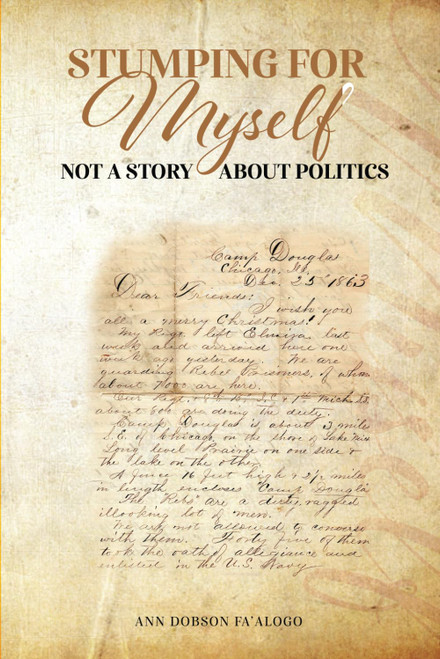 STUMPING FOR
Myself
NOT A STORY ABOUT POLITICS
Camp Douglas
Chicago, Ill.
Dec. 25th 1863
Dear Friends:
I wish you
all a merry Christmas!
My Regt. left Elmira last
week and arrived here one
week ago yesterday. We are
guarding Rebel Prisoners, of whom
about 7000 are here.
Our Regt. & 1st Mich. S.S.
about 800 are doing the duty.
Camp Douglas is about 3 miles
S.E. of Chicago, on the shore of Lake
Long level Prairie on one side &
the lake on the other.
A fence 16 feet high & 2 1/2 miles
in length encloses "Camp Douglas
The "Rebs" are a dirty, ragged
illooking lot of men.
We are not allowed to converse
with them. Forty five of them
took the oath of allegiance and
enlisted in the U.S. Navy
ANN DOBSON FA'ALOGO